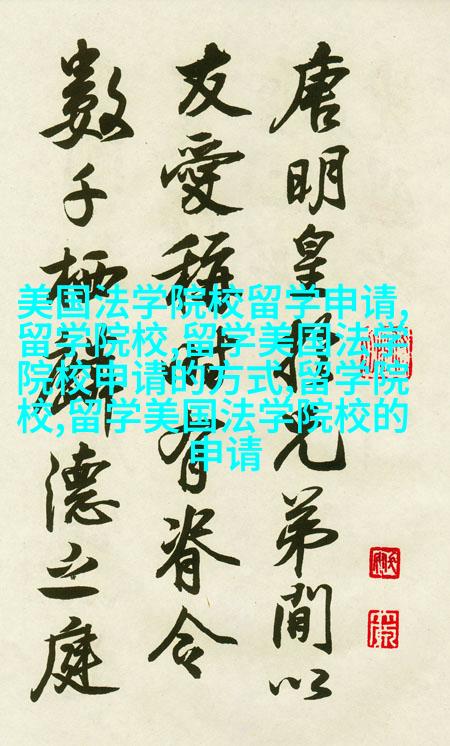 唐明皇於兄弟間以
友愛稱時有脊令
數千栖麟德之庭
美国法学院校留学申请,
留学院校,留学美国法学
院校申请的方式,留学院
校,留学美国法学院校的
申请